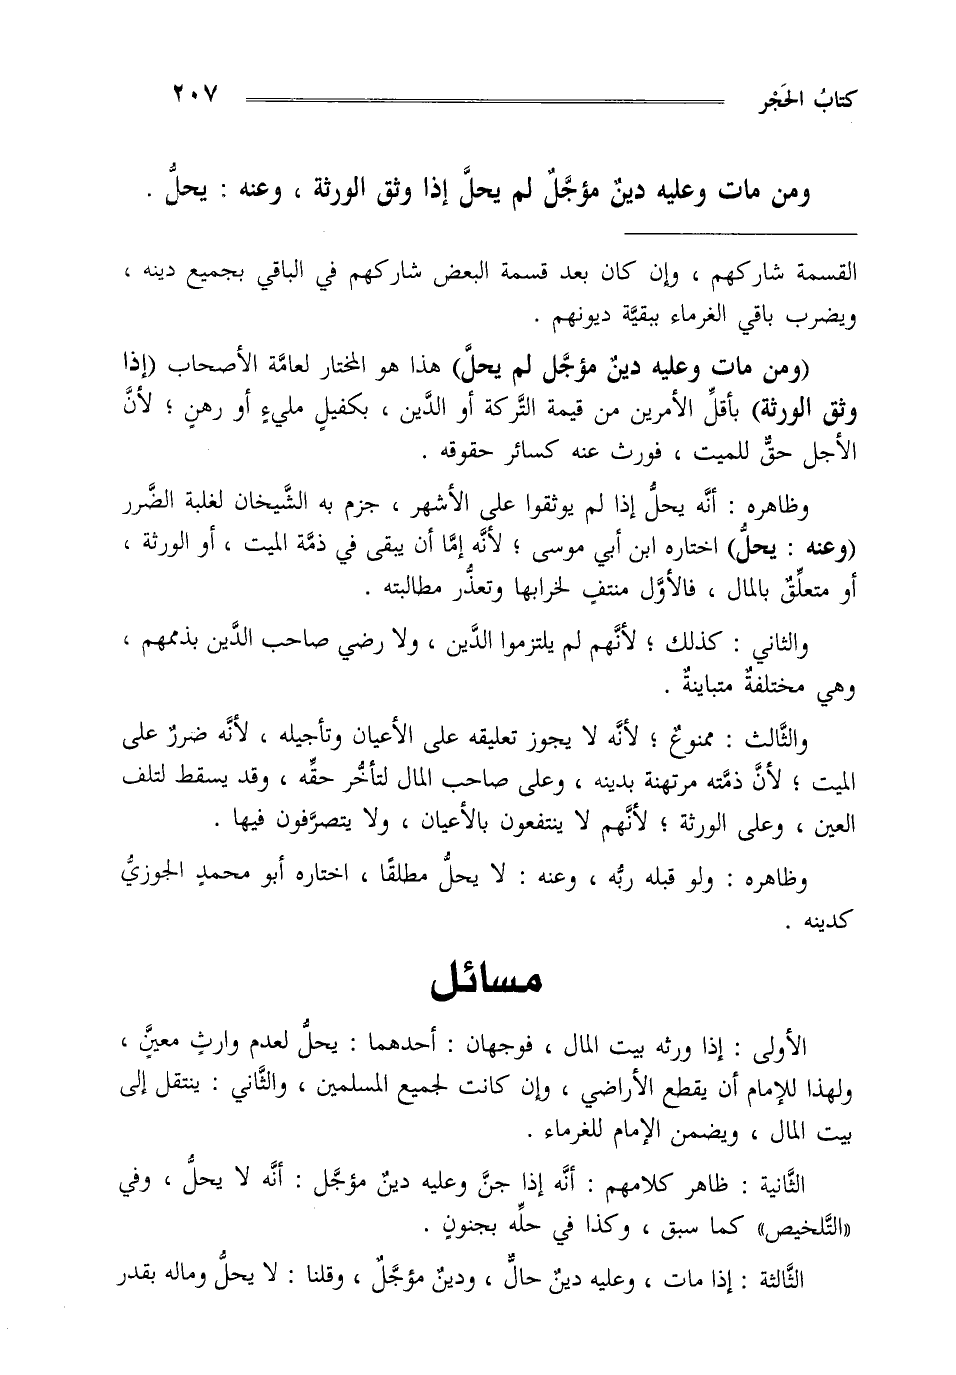 كتابُ الحَجْر ٢٠٧
ومن مات وعليه دينٌ مؤجَّلٌ لم يحلَّ إذا وثق الورثة ، وعنه : يحلُّ .
القسمة شاركهم ، وإن كان بعد قسمة البعض شاركهم في الباقي بجميع دينه ،
ويضرب باقي الغرماء ببقيَّة ديونهم .
(ومن مات وعليه دينٌ مؤجَّل لم يحلَّ) هذا هو المختار لعامَّة الأصحاب (إذا
وثق الورثة) بأقلِّ الأمرين من قيمة التَّركة أو الدَّين ، بكفيلٍ مليءٍ أو رهنٍ ؛ لأنَّ
الأجل حقٌّ للميت ، فورث عنه كسائر حقوقه .
وظاهره : أنَّه يحلُّ إذا لم يوثقوا على الأشهر ، جزم به الشَّيخان لغلبة الضَّرر
(وعنه : يحلُّ) اختاره ابن أبي موسى ؛ لأنَّه إمَّا أن يبقى في ذمَّة الميت ، أو الورثة ،
أو متعلِّقٌ بالمال ، فالأوَّل منتفٍ لخرابها وتعذُّر مطالبته .
والثاني : كذلك ؛ لأنَّهم لم يلتزموا الدَّين ، ولا رضي صاحب الدَّين بذممهم ،
وهي مختلفةٌ متباينةٌ .
والثَّالث : ممنوعٌ ؛ لأنَّه لا يجوز تعليقه على الأعيان وتأجيله ، لأنَّه ضررٌ على
الميت ؛ لأنَّ ذمَّته مرتهنة بدينه ، وعلى صاحب المال لتأخُّر حقِّه ، وقد يسقط لتلف
العين ، وعلى الورثة ؛ لأنَّهم لا ينتفعون بالأعيان ، ولا يتصرَّفون فيها .
وظاهره : ولو قبله ربُّه ، وعنه : لا يحلُّ مطلقًا ، اختاره أبو محمدٍ الجوزيُّ
كدينه .
مسائل
الأولى : إذا ورثه بيت المال ، فوجهان : أحدهما : يحلُّ لعدم وارثٍ معينٍّ ،
ولهذا للإمام أن يقطع الأراضي ، وإن كانت لجميع المسلمين ، والثَّاني : ينتقل إلى
بيت المال ، ويضمن الإمام للغرماء .
الثَّانية : ظاهر كلامهم : أنَّه إذا جنَّ وعليه دينٌ مؤجَّل : أنَّه لا يحلُّ ، وفي
«التَّلخيص» كما سبق ، وكذا في حلِّه بجنونٍ .
الثَّالثة : إذا مات ، وعليه دينٌ حالٌّ ، ودينٌ مؤجَّلٌ ، وقلنا : لا يحلُّ وماله بقدر